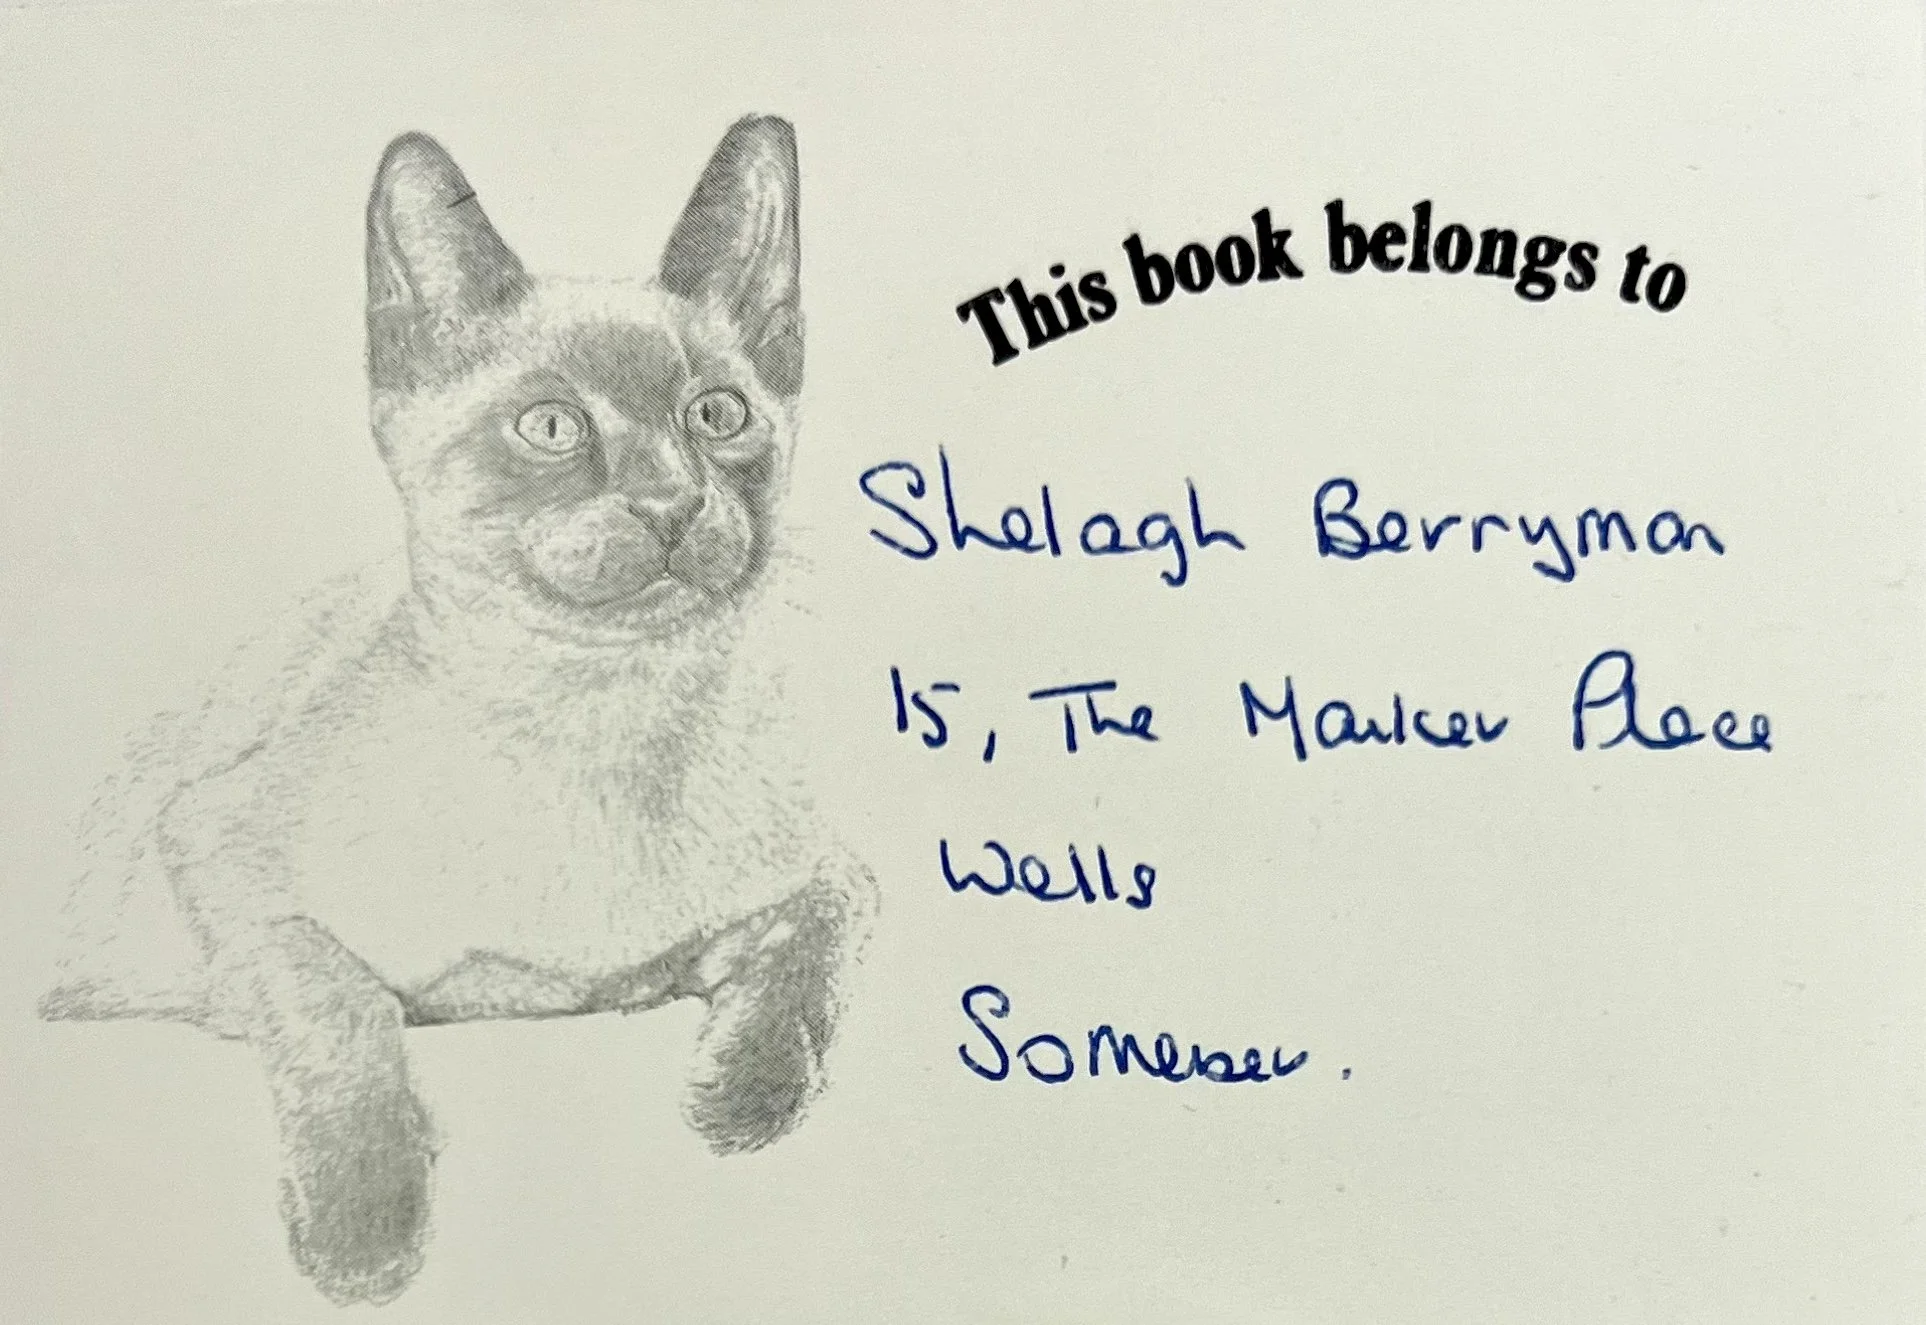 This book belongs to
Shelagh Berryman
15, The Market Place
Wells
Somerset.